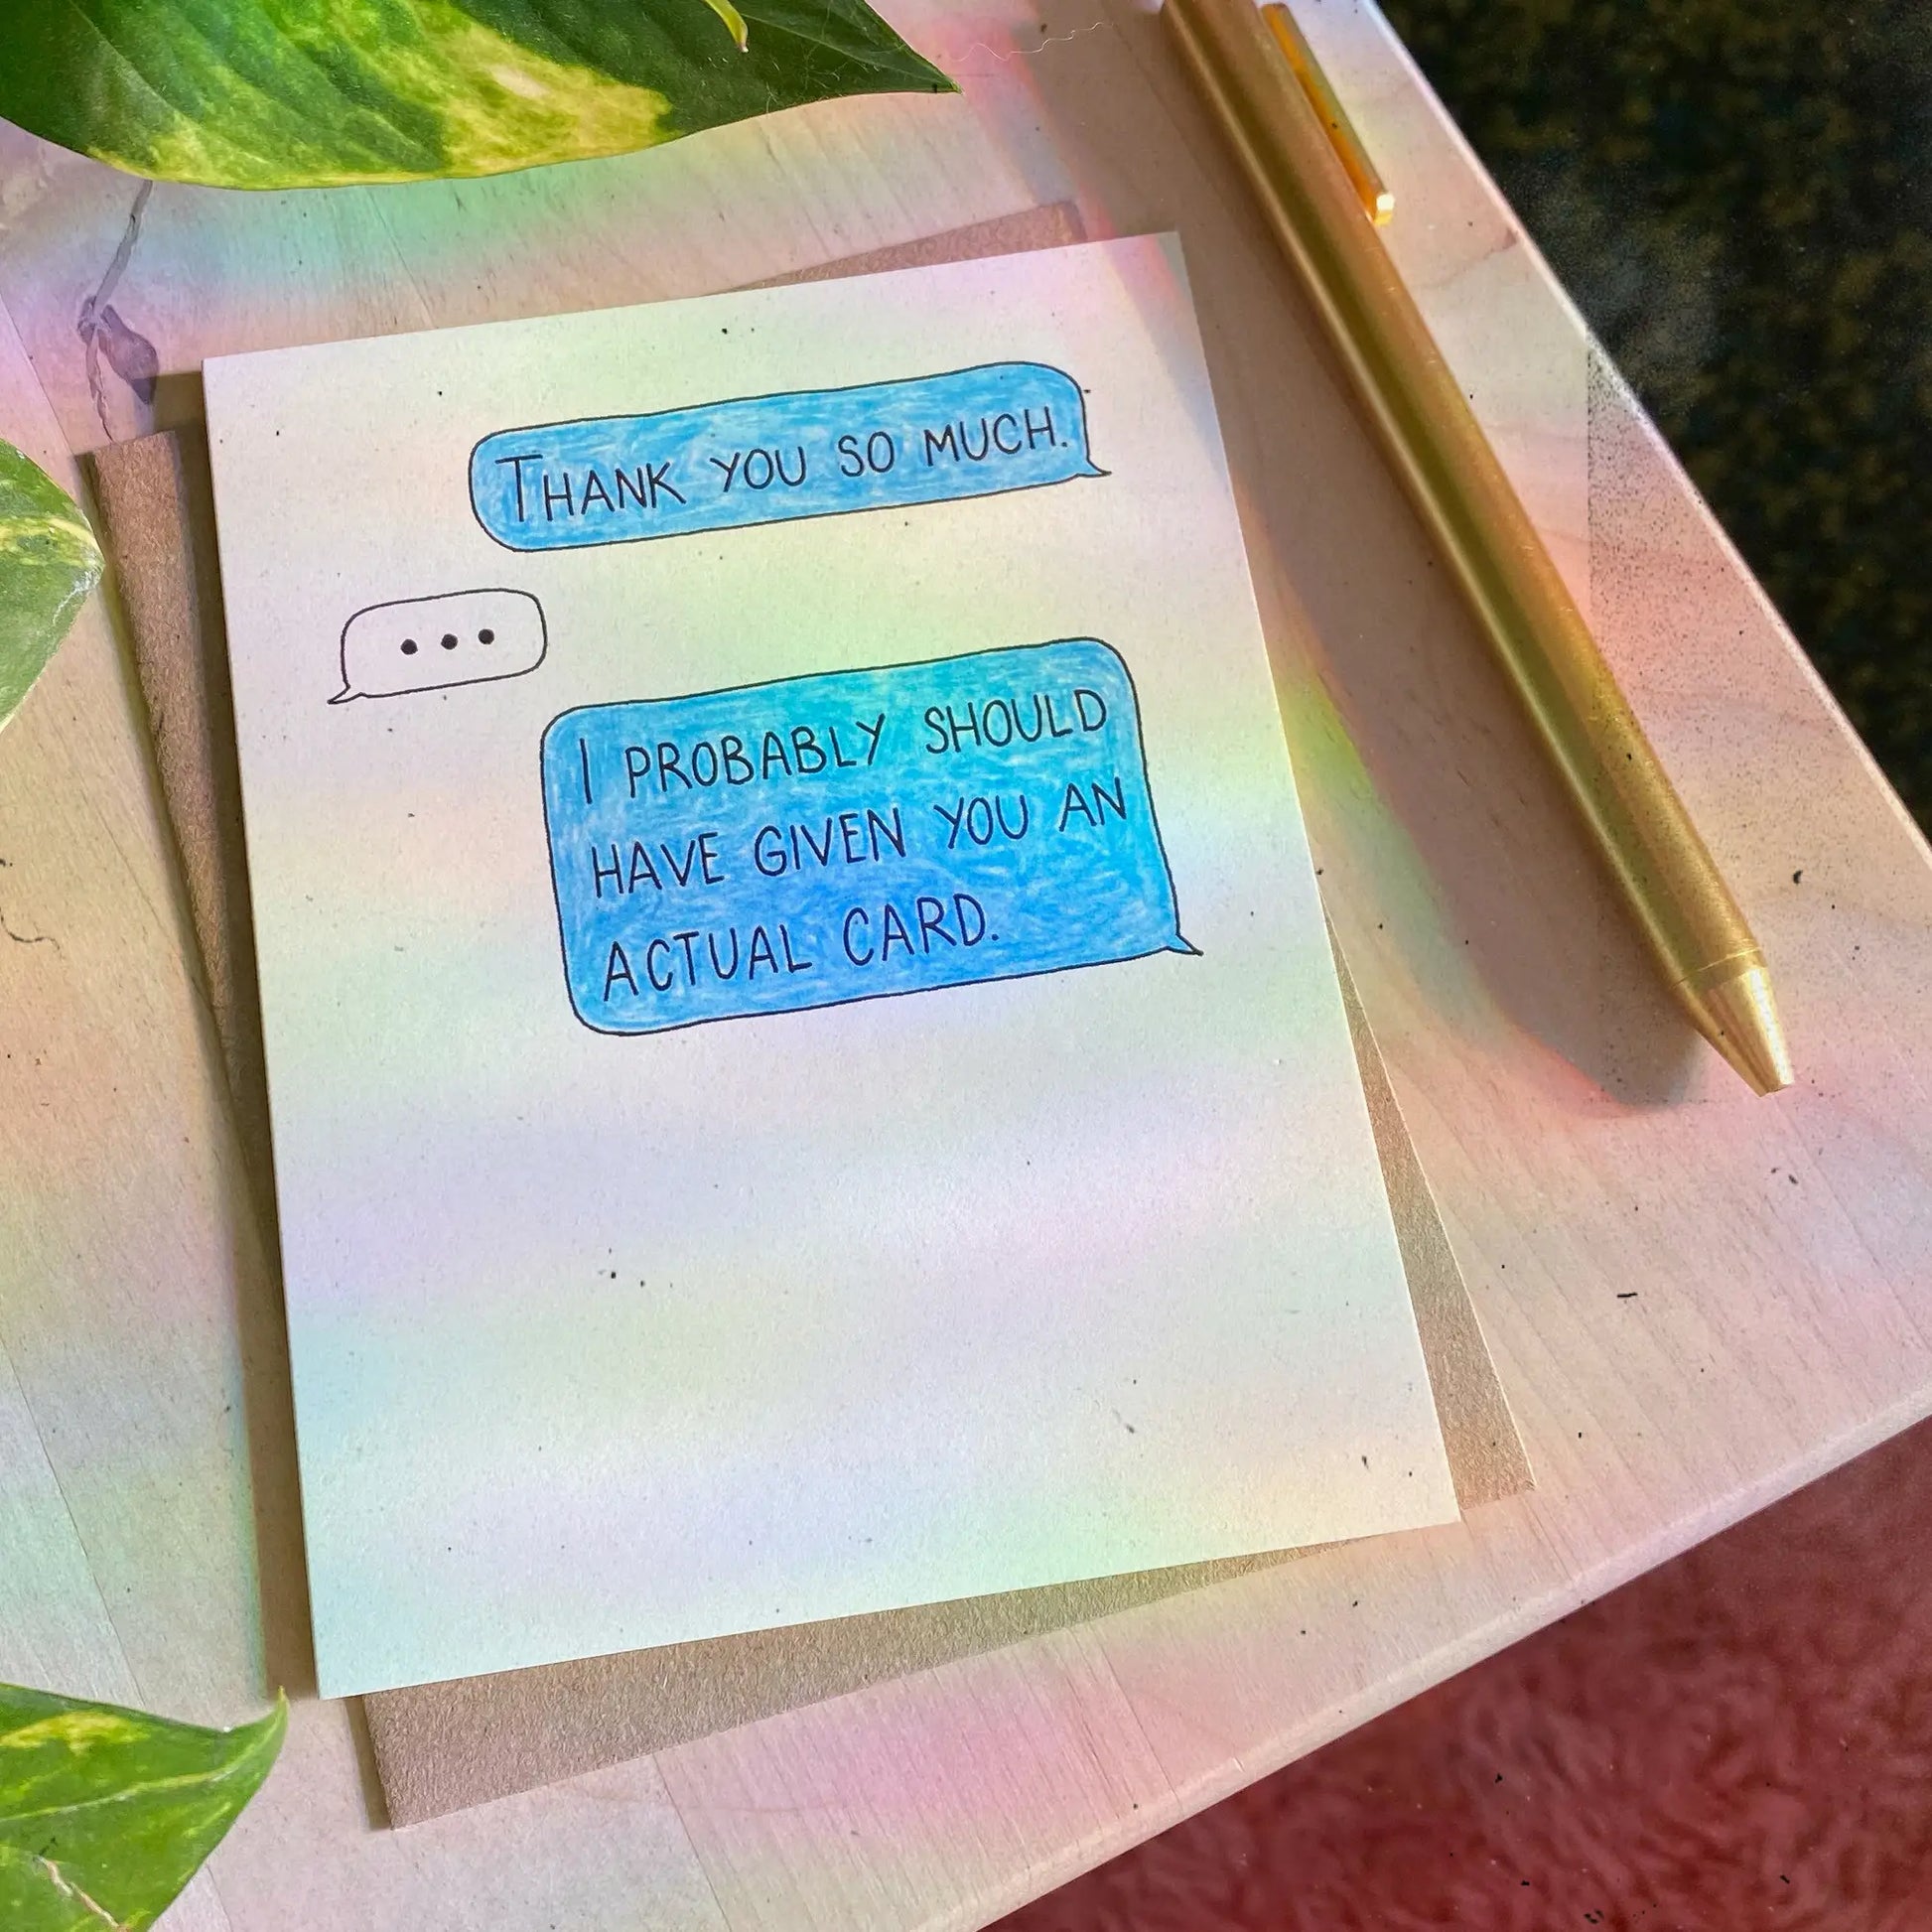 THANK YOU SO MUCH.
...
I PROBABLY SHOULD
HAVE GIVEN YOU AN
ACTUAL CARD.